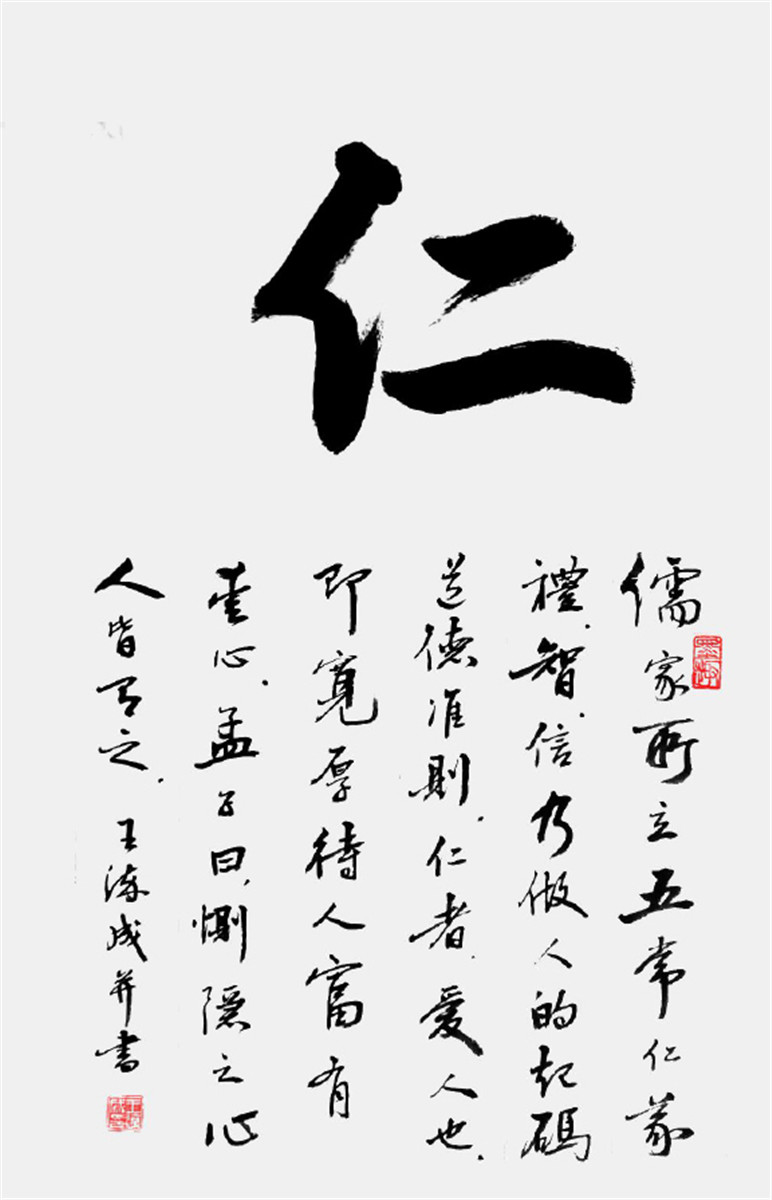 仁
儒家所立五常仁義
禮、智、信乃做人的起碼
道德准則、仁者、愛人也、
即寬厚待人富有
愛心、孟子曰、惻隱之心
人皆有之、王洪成并書